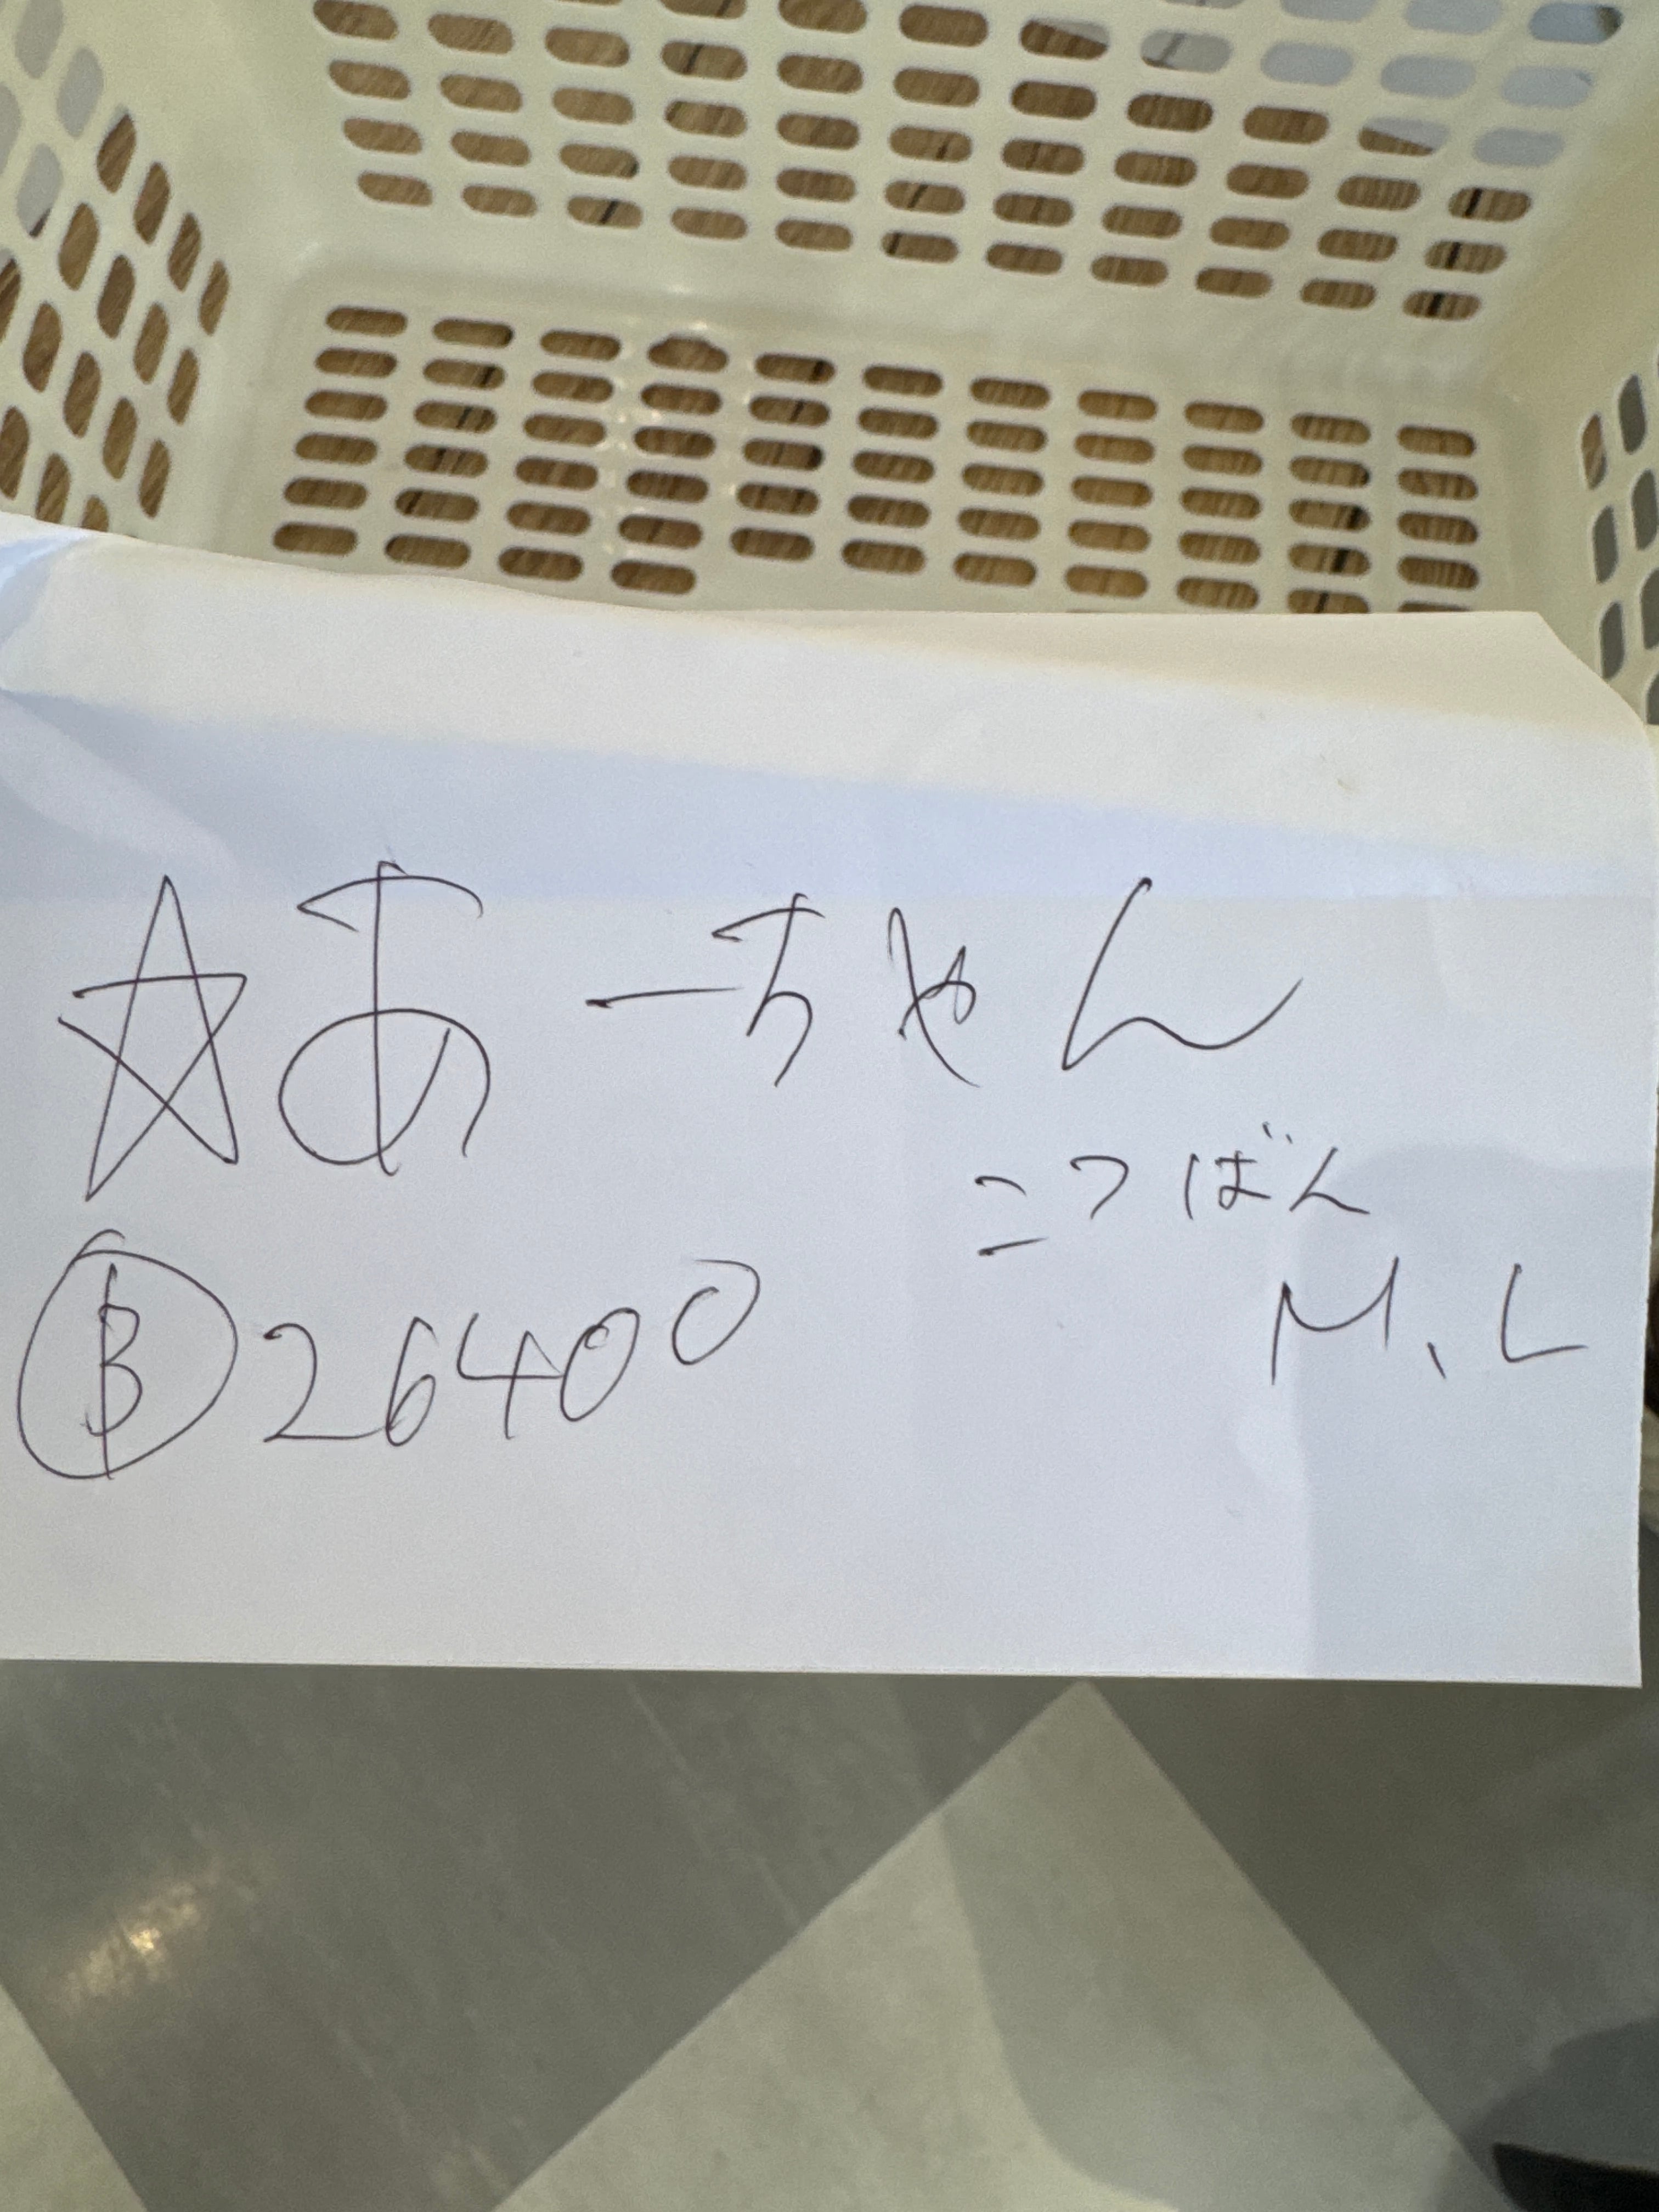 ☆あーちゃん
こつばん
M、L
Ⓑ26400